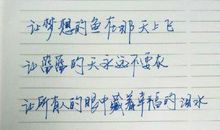 让梦想的鱼在那天上飞
让蓝蓝的天永远不要灰
让所有人的眼中藏着幸福的泪水